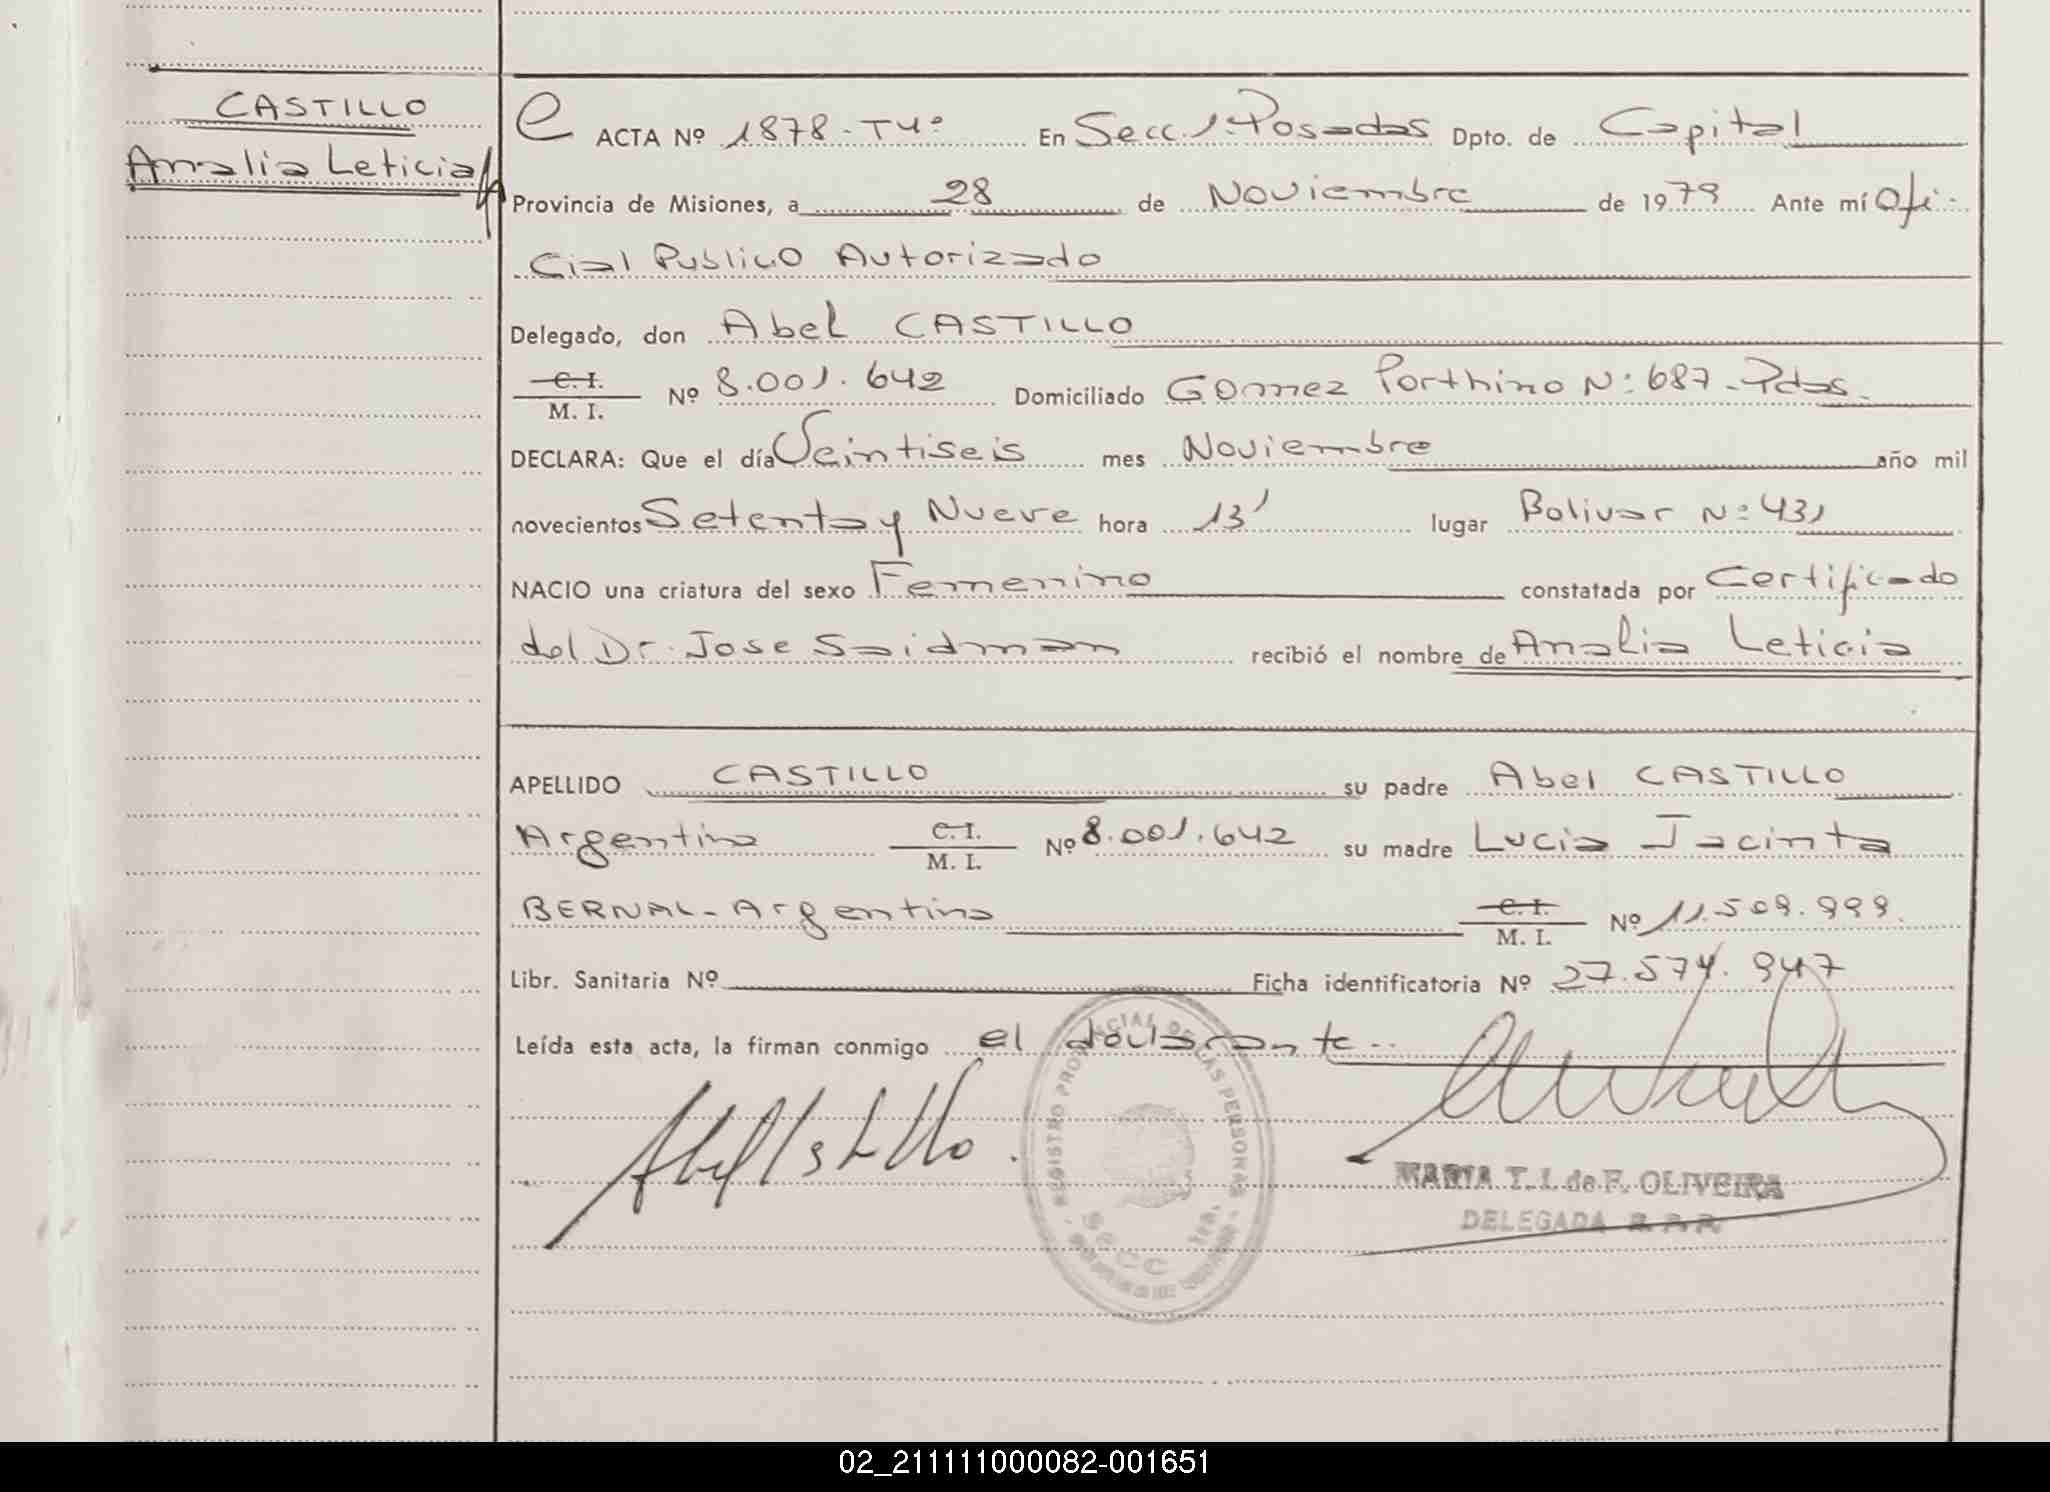 CASTILLO
Analia Leticia
e ACTA Nº 1878-T4º En Secc. 1º Posadas Dpto. de Capital
Provincia de Misiones, a 28 de Noviembre de 1979 Ante mí Ofi-
cial Publico Autorizado
Delegado, don Abel CASTILLO
C. I.
M. I. Nº 8.001.642 Domiciliado Gomez Porthino Nº 687-Pdas.
DECLARA: Que el día Veintiseis mes Noviembre año mil
novecientos Setenta y Nueve hora 13' lugar Bolivar Nº 431
NACIO una criatura del sexo Femenino constatada por Certificado
del Dr. Jose Saidman recibió el nombre de Analia Leticia
APELLIDO CASTILLO su padre Abel CASTILLO
Argentino C. I.
M. I. Nº 8.001.642 su madre Lucia Jacinta
BERNAL-Argentina C. I.
M. I. Nº 11.509.999.
Libr. Sanitaria Nº Ficha identificatoria Nº 27.574.947
Leída esta acta, la firman conmigo el declarante..
Abel Castillo
REGISTRO PROVINCIAL DE LAS PERSONAS
Secc 1ra.
MARIA T. I. de F. OLIVEIRA
DELEGADA R. P. P.
02_211111000082-001651